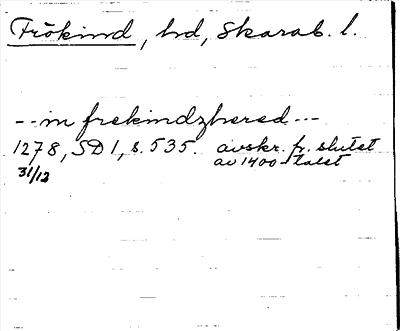 Frökind, hd, Skarab. l.
--in frekindzhæred---
1278, SD 1, s. 535. avskr. fr. slutet
31/12 av 1400-talet